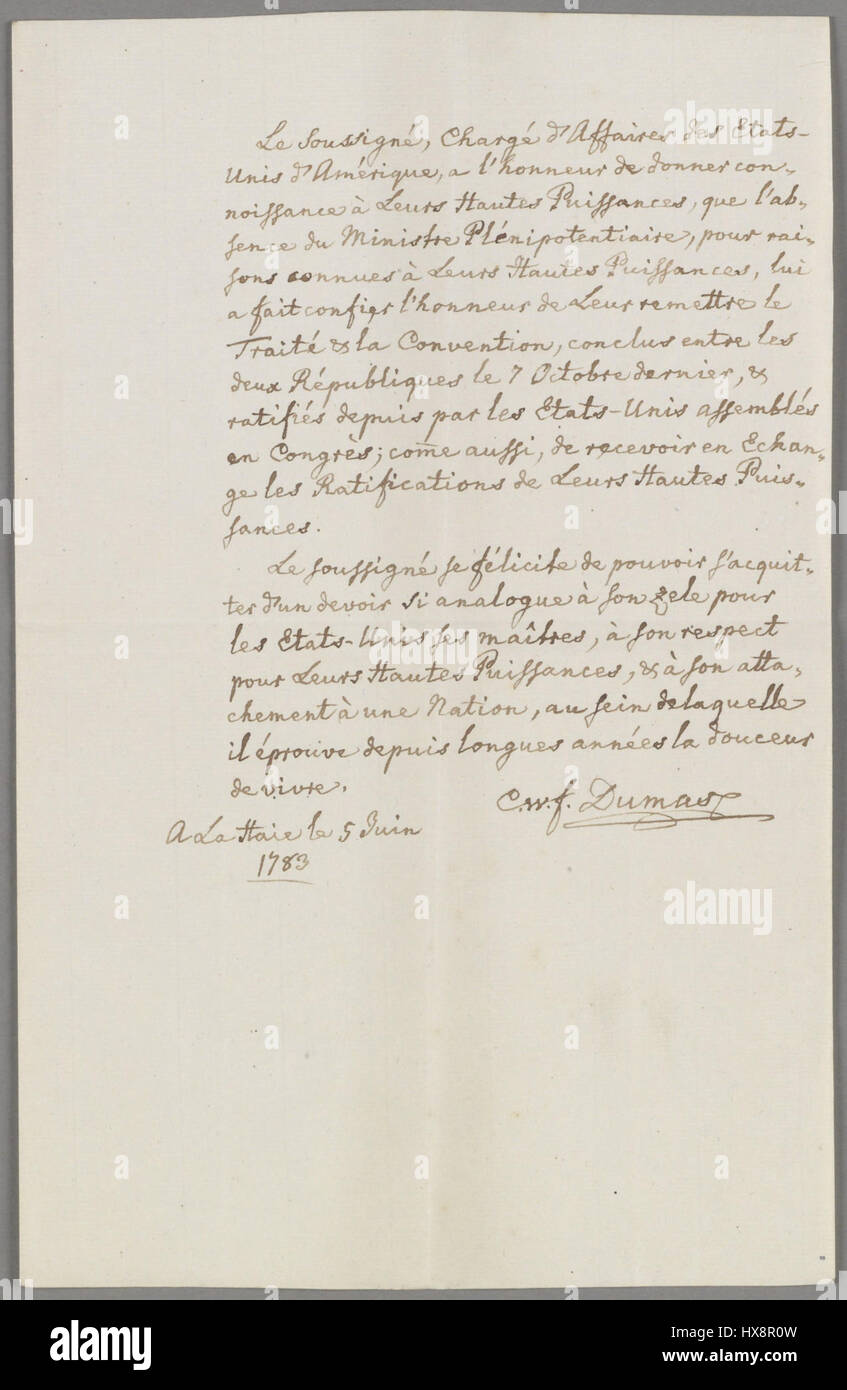 Le soussigné, Chargé d'Affaires des Etats-
Unis d'Amérique, a l'honneur de donner con-
noissance à Leurs Hautes Puissances, que l'ab-
sence du Ministre Plénipotentiaire, pour rai-
sons connues à Leurs Hautes Puissances, lui
a fait confier l'honneur de Leur remettre le
Traité & la Convention, conclus entre les
deux Républiques le 7 Octobre dernier, &
ratifiés depuis par les Etats-Unis assemblés
en Congrès; com̅e aussi, de recevoir en Echan-
ge les Ratifications de Leurs Hautes Puis-
sances.
Le soussigné se félicite de pouvoir s'acquit-
ter d'un devoir si analogue à son zele pour
les Etats-Unis ses maîtres, à son respect
pour Leurs Hautes Puissances, & à son atta-
chement à une Nation, au sein de laquelle
il éprouve depuis longues années la douceur
de vivre.
C.W.f. Dumas
A La Haie le 5 Juin
1783
alamy
alamy
alamy
a alamy
Image ID: HX8R0W
www.alamy.com